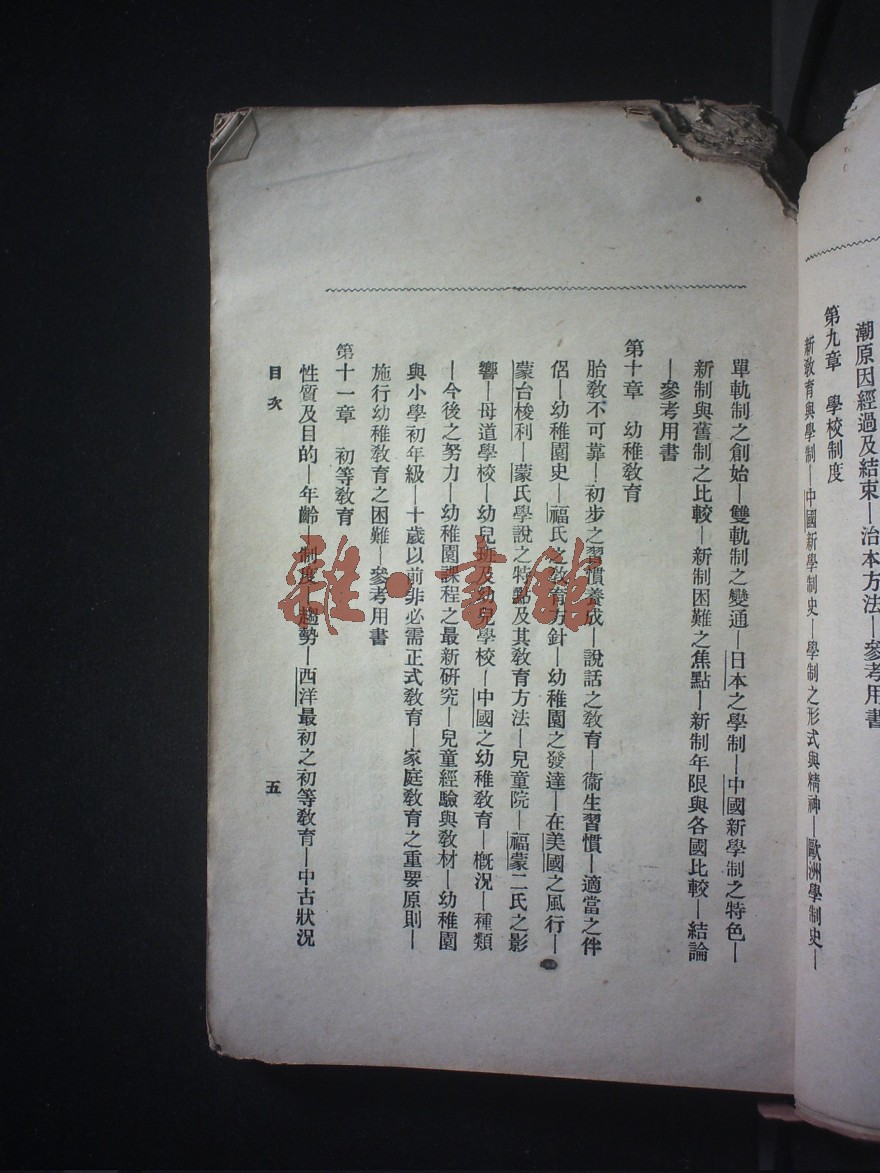 潮原因經過及結束—治本方法—參考用書
第九章　學校制度
新教育與學制—中國新學制史—學制之形式與精神—歐洲學制史—
單軌制之創始—雙軌制之變通—日本之學制—中國新學制之特色—
新制與舊制之比較—新制困難之焦點—新制年限與各國比較—結論
—參考用書
第十章　幼稚教育
胎教不可靠—初步之習慣養成—說話之教育—衞生習慣—適當之伴
侶—幼稚園史—福氏之教育方針—幼稚園之發達—在美國之風行—
蒙台梭利—蒙氏學說之特點及其教育方法—兒童院—福蒙二氏之影
響—母道學校—幼兒班及幼兒學校—中國之幼稚教育—概況—種類
—今後之努力—幼稚園課程之最新研究—兒童經驗與教材—幼稚園
與小學初年級—十歲以前非必需正式教育—家庭教育之重要原則—
施行幼稚教育之困難—參考用書
第十一章　初等教育
性質及目的—年齡—制度—趨勢—西洋最初之初等教育—中古狀況
目次
五
雜·書館